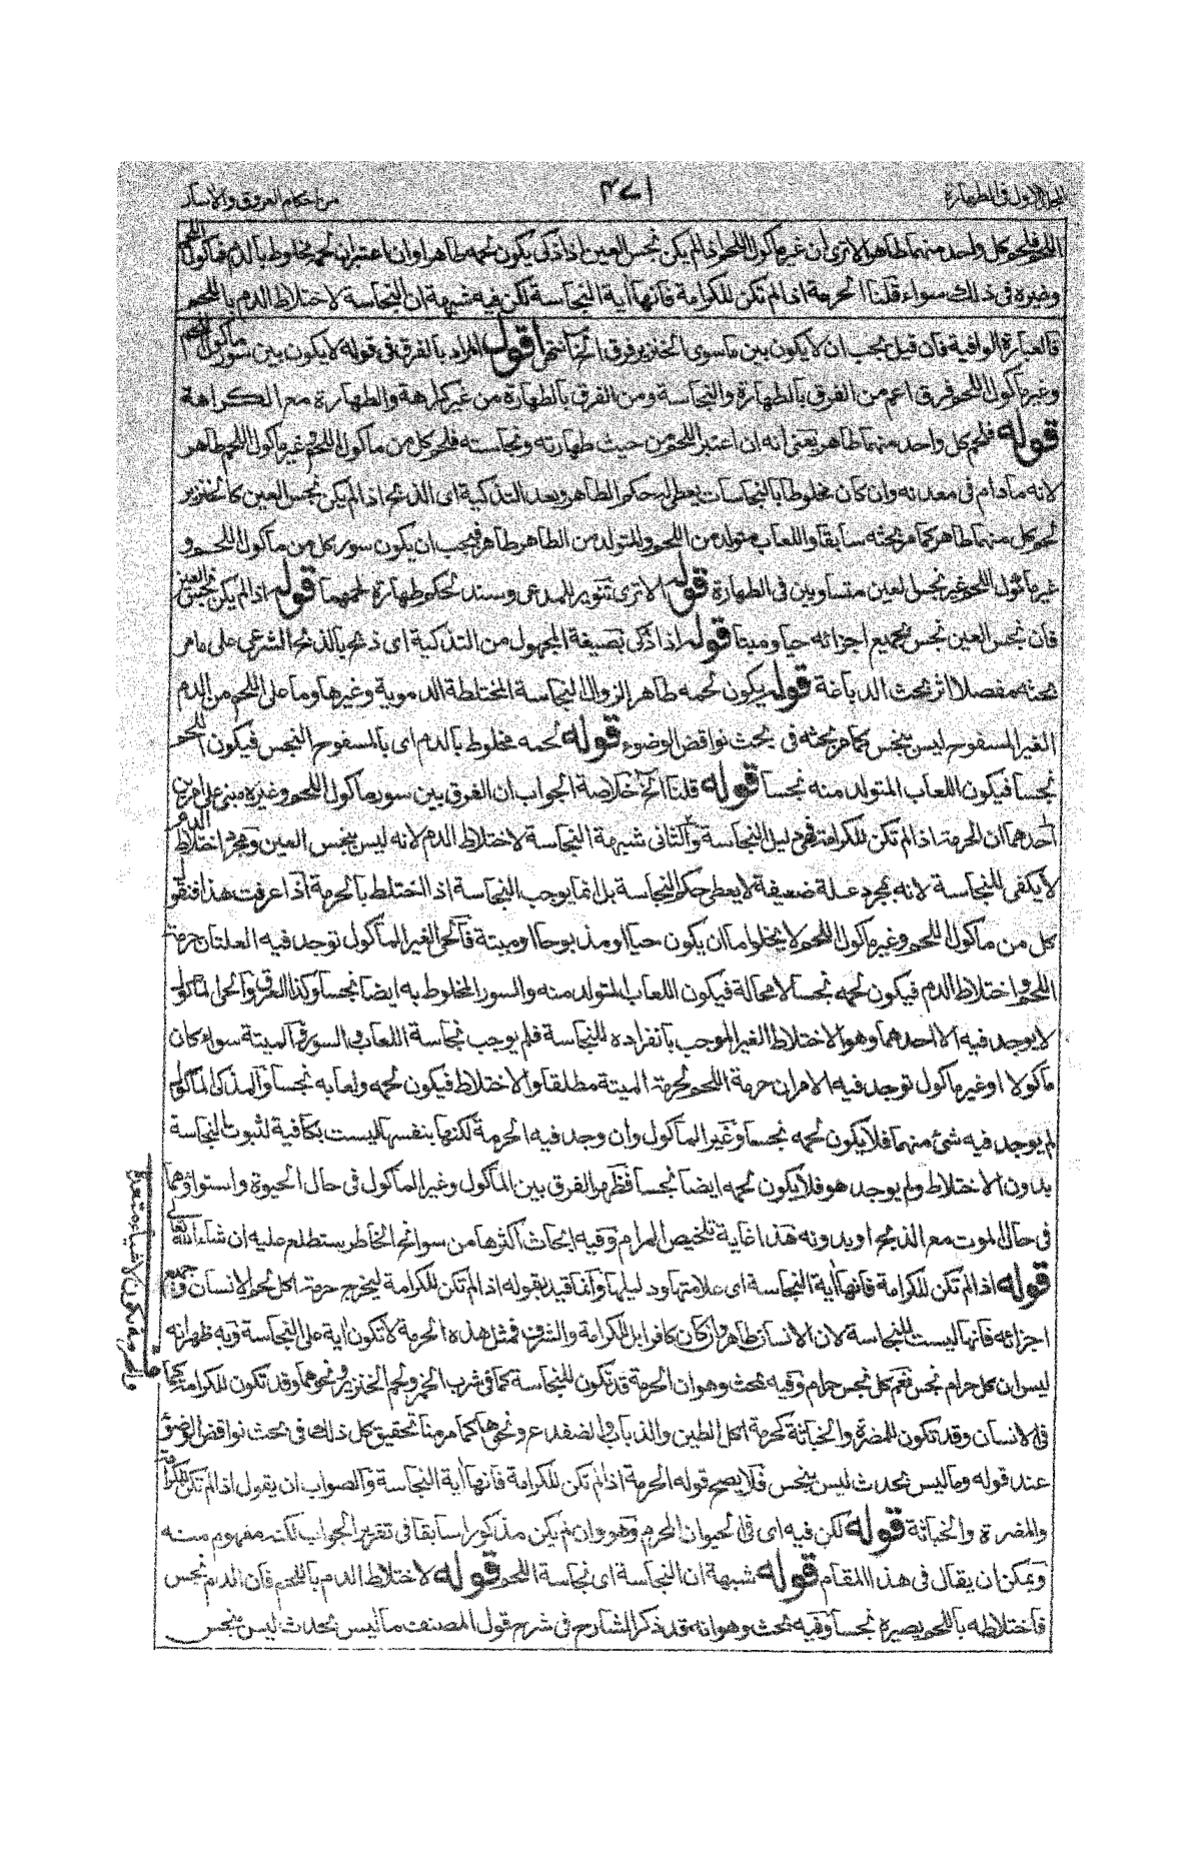 الجلد الاول فى الطهارة ٤٧١ من احكام العروق والآسار
اللحم فلحم كل واحد منهما طاهر الا ترى ان غير ماكول اللحم اذا لم يكن نجس العين اذا ذكى يكون لحمه طاهرا وان اعتبر ان لحمه مخلوط بالدم فماكول اللحم
وغيره فى ذلك سواء قلنا الحرمة اذا لم تكن للكرامة فانها آية النجاسة لكن فيه شبهة ان النجاسة لاختلاط الدم باللحم
فالعبارة الوافية فان قيل يجب ان لا يكون بين ما سوى الخنزير فرق الخ انتهى اقول المراد بالفرق فى قوله لا يكون بين سور ماكول اللحم
وغير ماكول اللحم فرق اعم من الفرق بالطهارة والنجاسة ومن الفرق بالطهارة من غير كراهة والطهارة مع الكراهة
قوله فلحم كل واحد منهما طاهر يعنى انه ان اعتبر اللحم من حيث طهارته ونجاسته فلحم كل من ماكول اللحم وغير ماكول اللحم طاهر
لانه ما دام فى معدنه وان كان مخلوطا بالنجاسات يعطى له حكم الطاهر وبعد التذكية اى الذبح اذا لم يكن نجس العين كالخنزير
لحم كل منهما طاهر كما مر بحثه سابقا واللعاب متولد من اللحم والمتولد من الطاهر طاهر فيجب ان يكون سور كل من ماكول اللحم و
غير ماكول اللحم غير نجس العين متساويين فى الطهارة قوله الا ترى تنوير للمدعى وسند لحكم طهارة لحمهما قوله اذا لم يكن نجس العين
فان نجس العين نجس بجميع اجزائه حيا وميتا قوله اذا ذكى بصيغة المجهول من التذكية اى ذبح بالذبح الشرعى على ما مر
بحثه مفصلا اثر بحث الدباغة قوله يكون لحمه طاهر الزوال النجاسة المختلطة الدموية وغيرها وما على اللحم من الدم
الغير المسفوح ليس بنجس كما مر بحثه فى بحث نواقض الوضوء قوله لحمه مخلوط بالدم اى بالمسفوح النجس فيكون اللحم
نجسا فيكون اللعاب المتولد منه نجسا قوله قلنا الخ خلاصة الجواب ان الفرق بين سور ماكول اللحم وغيره مبنى على امرين
احدهما ان الحرمة اذا لم تكن للكرامة فهى دليل النجاسة والثانى شبهة النجاسة لاختلاط الدم لانه ليس بنجس العين ومجرد اختلاط الدم
لا يكفى للنجاسة لانه بمجرد علة ضعيفة لا يعطى حكم النجاسة بل انما يوجب النجاسة اذا اختلط بالحرمة اذا عرفت هذا فنقول
كل من ماكول اللحم وغير ماكول اللحم لا يخلو اما ان يكون حيا او مذبوحا او ميتة فالحى الغير الماكول توجد فيه العلتان حرمة
اللحم واختلاط الدم فيكون لحمه نجسا لا محالة فيكون اللعاب المتولد منه والسور المخلوط به ايضا نجسا وكذا العرق والحى الماكول
لا يوجد فيه الا احدهما وهو الاختلاط الغير الموجب بانفراده للنجاسة فلم يوجب نجاسة اللعاب والسور والميتة سواء كان
ماكولا او غير ماكول توجد فيه الامران حرمة اللحم لحرمة الميتة مطلقا والاختلاط فيكون لحمه ولعابه نجسا والمذكى الماكول
لم يوجد فيه شئ منهما فلا يكون لحمه نجسا وغير الماكول وان وجد فيه الحرمة لكنها بنفسها ليست بكافية لثبوت النجاسة
بدون الاختلاط ولم يوجد هو فلا يكون لحمه ايضا نجسا فظهر الفرق بين الماكول وغير الماكول فى حال الحيوة واستواؤهما
فى حال الموت مع الذبح او بدونه هذا غاية تلخيص المرام وفيه ابحاث اكثرها من سوانح الخاطر ستطلع عليه ان شاء الله تعالى
قوله اذا لم تكن للكرامة فانها آية النجاسة اى علامتها ودليلها وانما قيد بقوله اذا لم تكن للكرامة ليخرج حرمة اكل لحم الانسان وجميع
اجزائه فانها ليست للنجاسة لان الانسان طاهر وان كان كافرا بل للكرامة والشرف فمثل هذه الحرمة لا تكون آية على النجاسة وبه ظهر انه
ليس ان كل حرام نجس نعم كل نجس حرام وفيه بحث وهو ان الحرمة قد تكون للنجاسة كما فى شرب الخمر ولحم الخنزير ونحوهما وقد تكون للكرامة كما
فى الانسان وقد تكون للمضرة والخباثة كحرمة اكل الطين والذباب والضفدع ونحوها كما مر منا تحقيق كل ذلك فى بحث نواقض الوضوء
عند قوله وما ليس بحدث ليس بنجس فلا يصح قوله الحرمة اذا لم تكن للكرامة فانها آية النجاسة والصواب ان يقول اذا لم تكن للكرامة
والمضرة والخباثة قوله لكن فيه اى فى الحيوان المحرم وهو وان لم يكن مذكورا سابقا فى تقرير الجواب لكنه مفهوم منه
ويمكن ان يقال فى هذا المقام قوله شبهة ان النجاسة اى نجاسة اللحم قوله لاختلاط الدم باللحم فان الدم نجس
فاختلاطه باللحم يصيره نجسا وفيه بحث وهو انه قد ذكر الشارح فى شرح قول المصنف ما ليس بحدث ليس بنجس